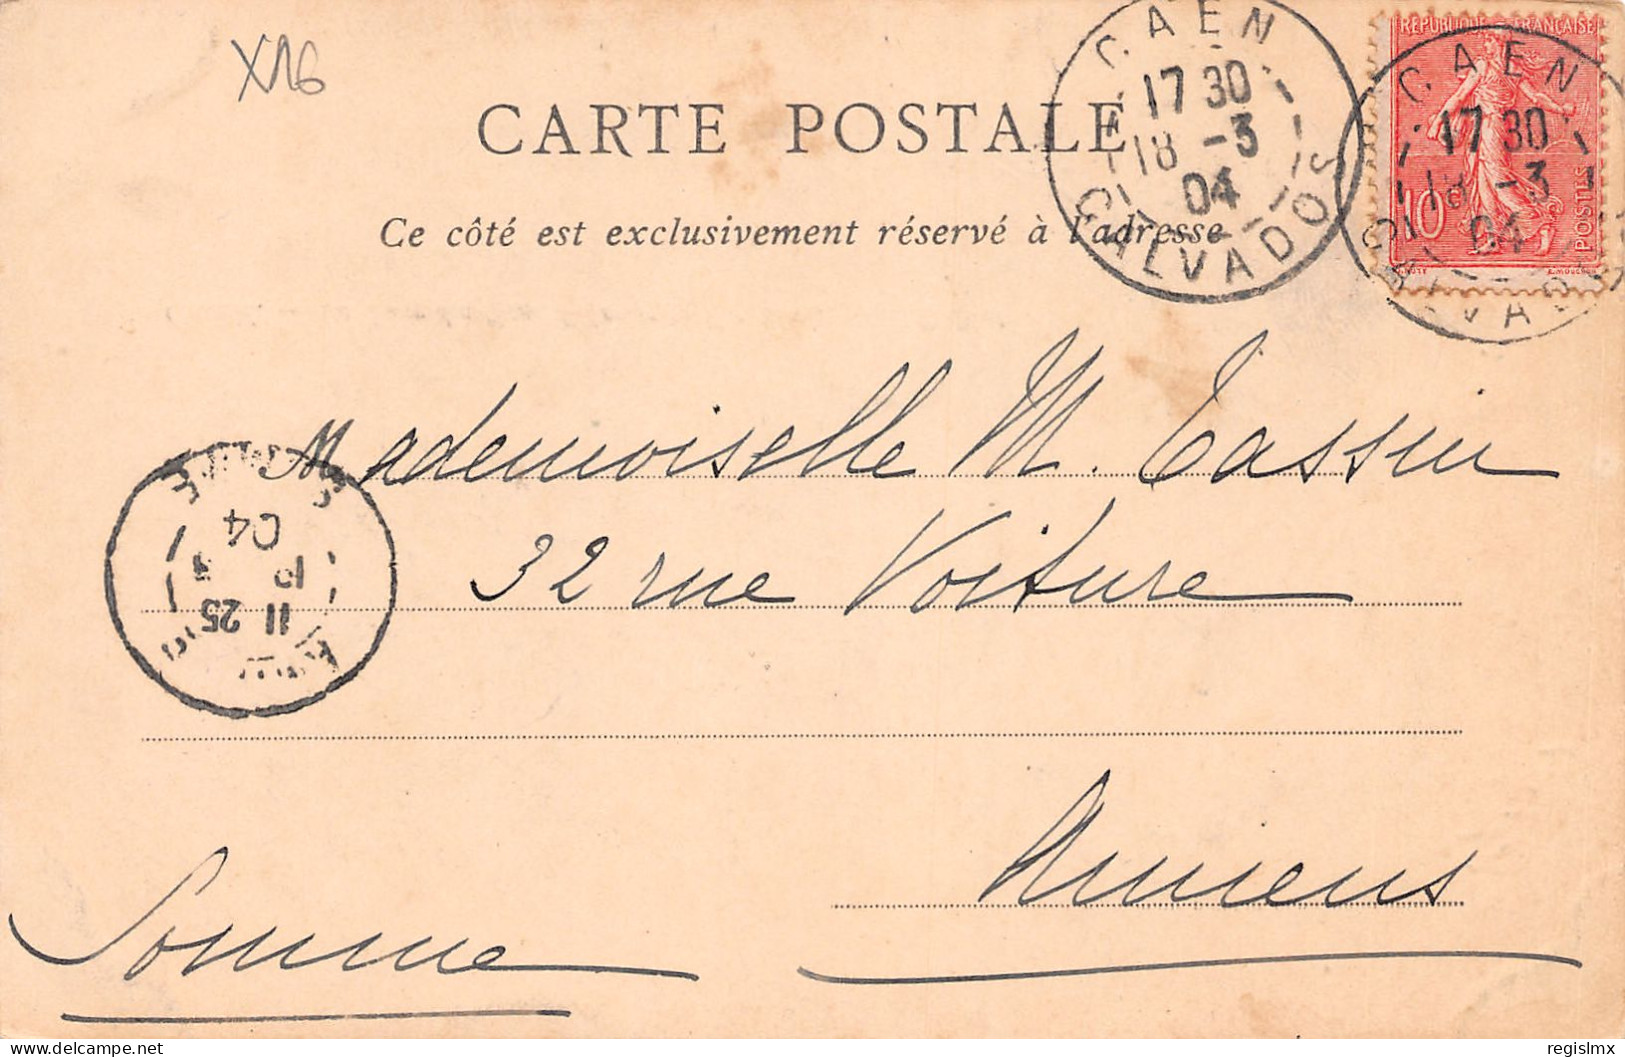 XM6
CARTE POSTALE
Ce côté est exclusivement réservé à l'adresse
CAEN
17 30
18 -3
04
CALVADOS
RÉPUBLIQUE FRANÇAISE
10
POSTES
O. ROTY
E. MOUCHON
CAEN
17 30
18 -3
04
CALVADOS
Mademoiselle M. Tassin
32 rue Voiture
Amiens
Somme
11 25
19
04
SOMME
delcampe.net
regislmx